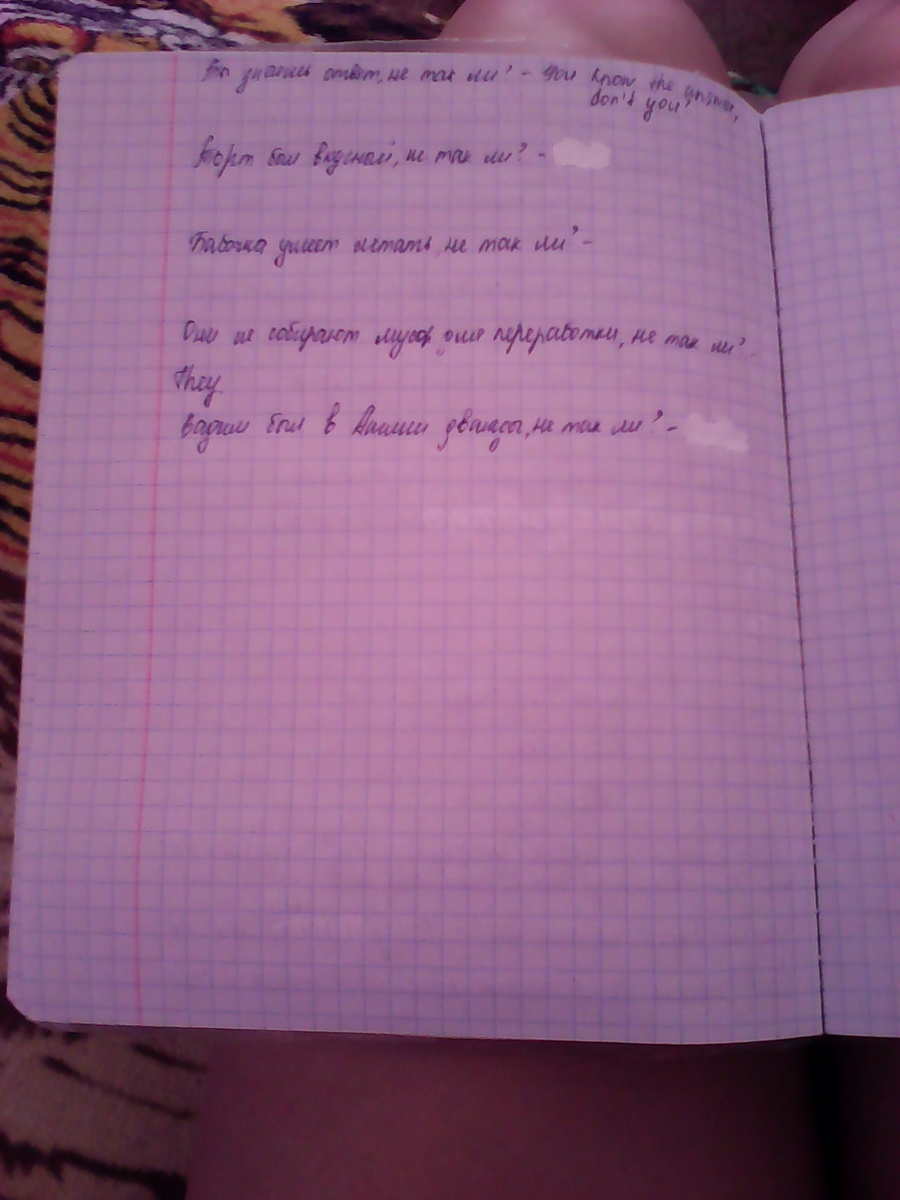 Ты знаешь ответ, не так ли? - You know the answer,
don't you?
Торт был вкусный, не так ли? -
Бабочка умеет летать, не так ли? -
Они не собирают мусор для переработки, не так ли? -
They
Вадим был в Англии дважды, не так ли? -